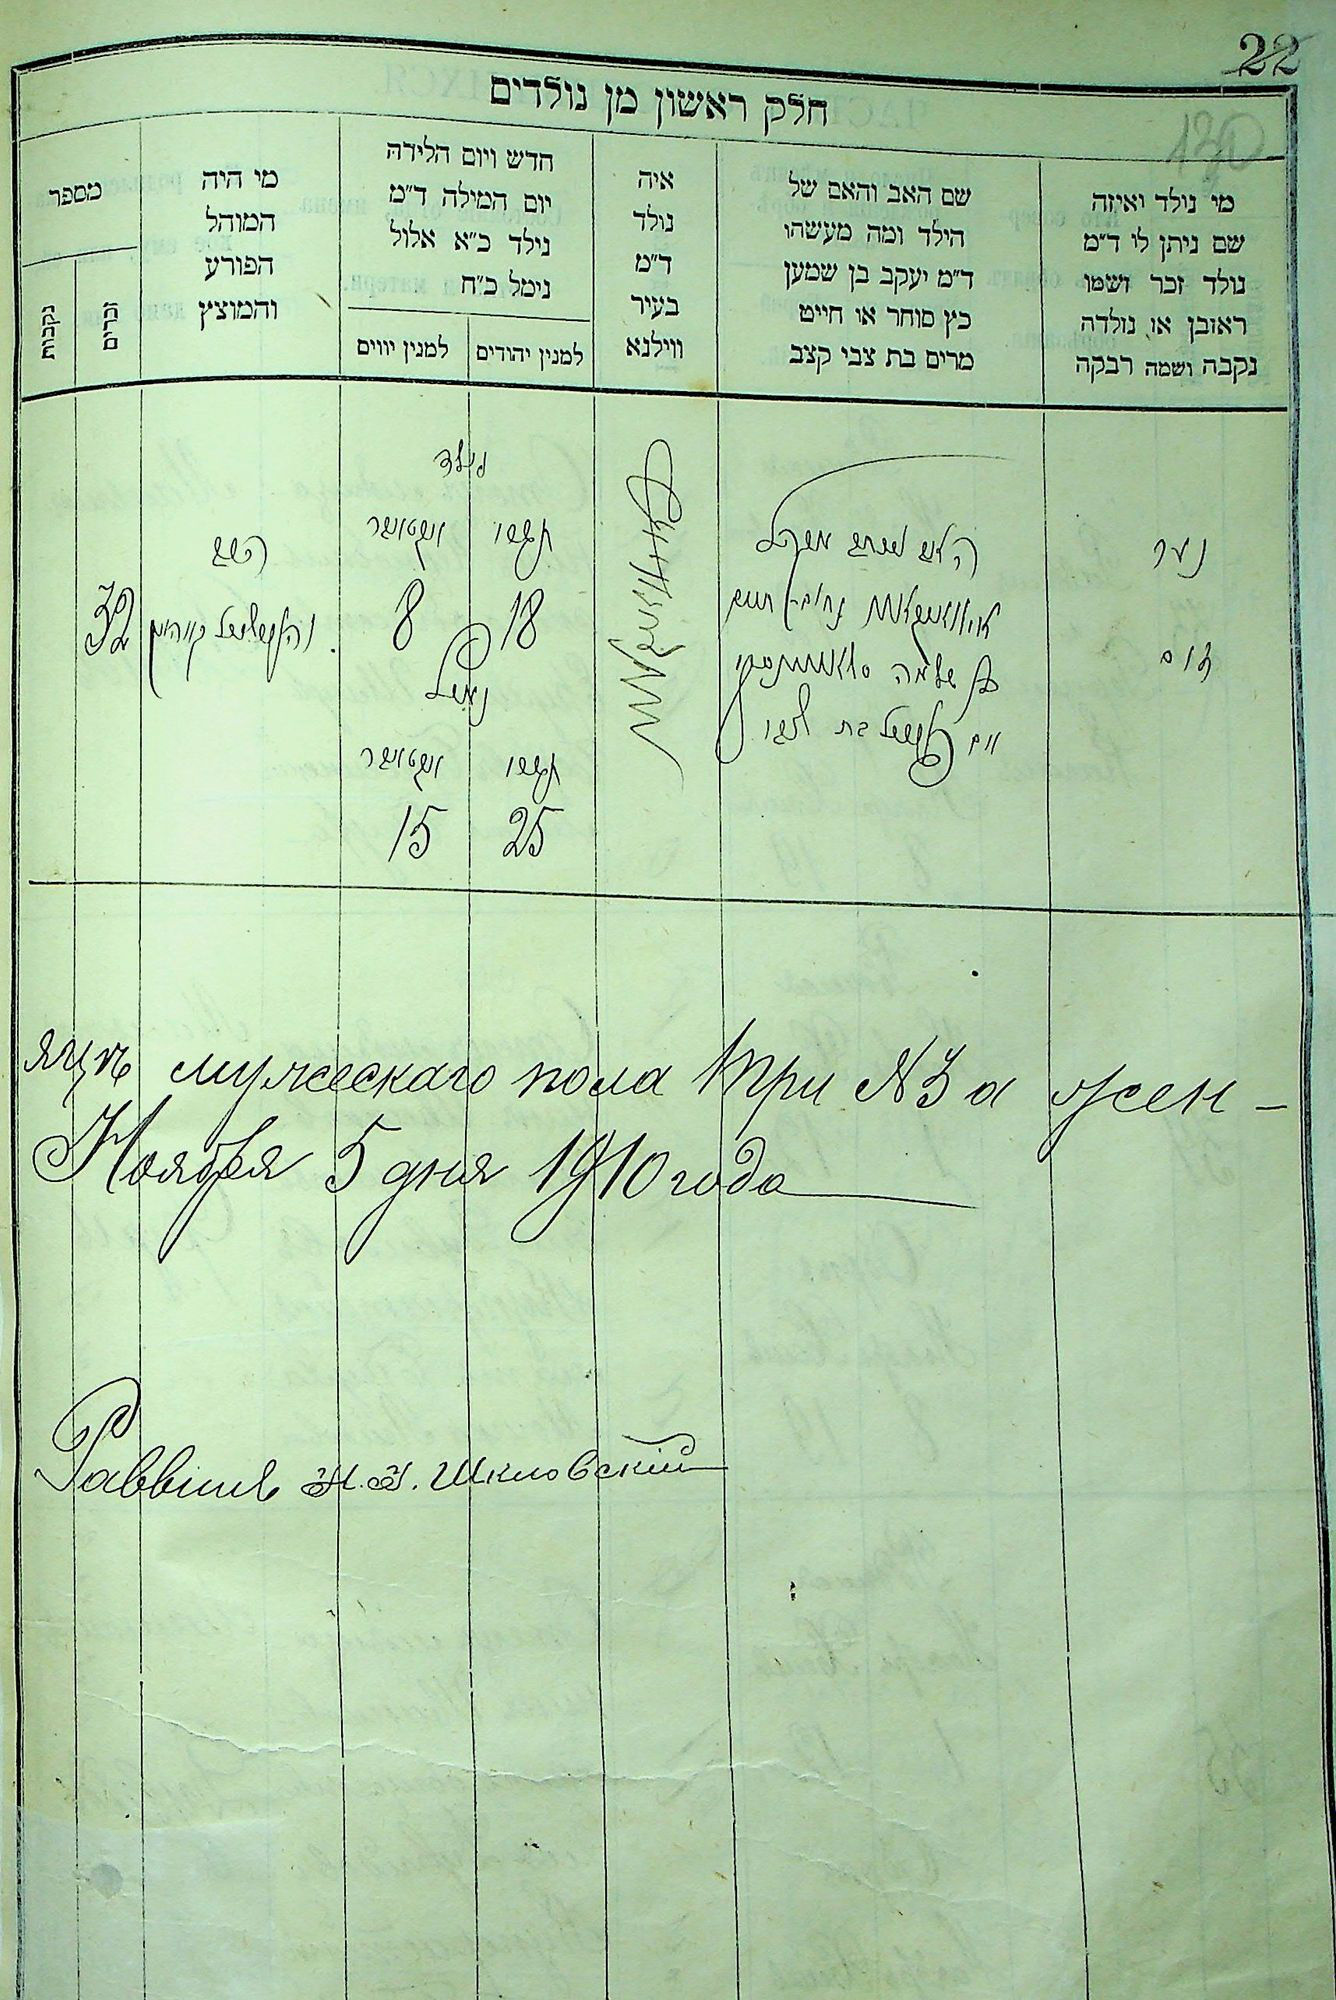 22
130
חלק ראשון מן נולדים
מי נולד ואיזה
שם ניתן לו ד"מ
נולד זכר ושמו
ראובן או נולדה
נקבה ושמה רבקה
שם האב והאם של
הילד ומה מעשהו
ד"מ יעקב בן שמען
כץ סוחר או חייט
מרים בת צבי קצב
איה
נולד
ד"מ
בעיר
ווילנא
חדש ויום הלידה
יום המילה ד"מ
נילד כ"א אלול
נימל כ"ח
למנין יהודים
למנין יווים
מי היה
המוהל
הפורע
והמוצץ
מספר
זכרים
נקבות
נער
האב
בן שלמה
אם בת
נילד
תשרי
אקטאבר
18
8
נימול
תשרי
אקטאבר
25
15
הרב
32
яцъ мужескаго пола три №3 а жен-
Ноября 5 дня 1910 года
Раввинъ Н. І. Шкловскій